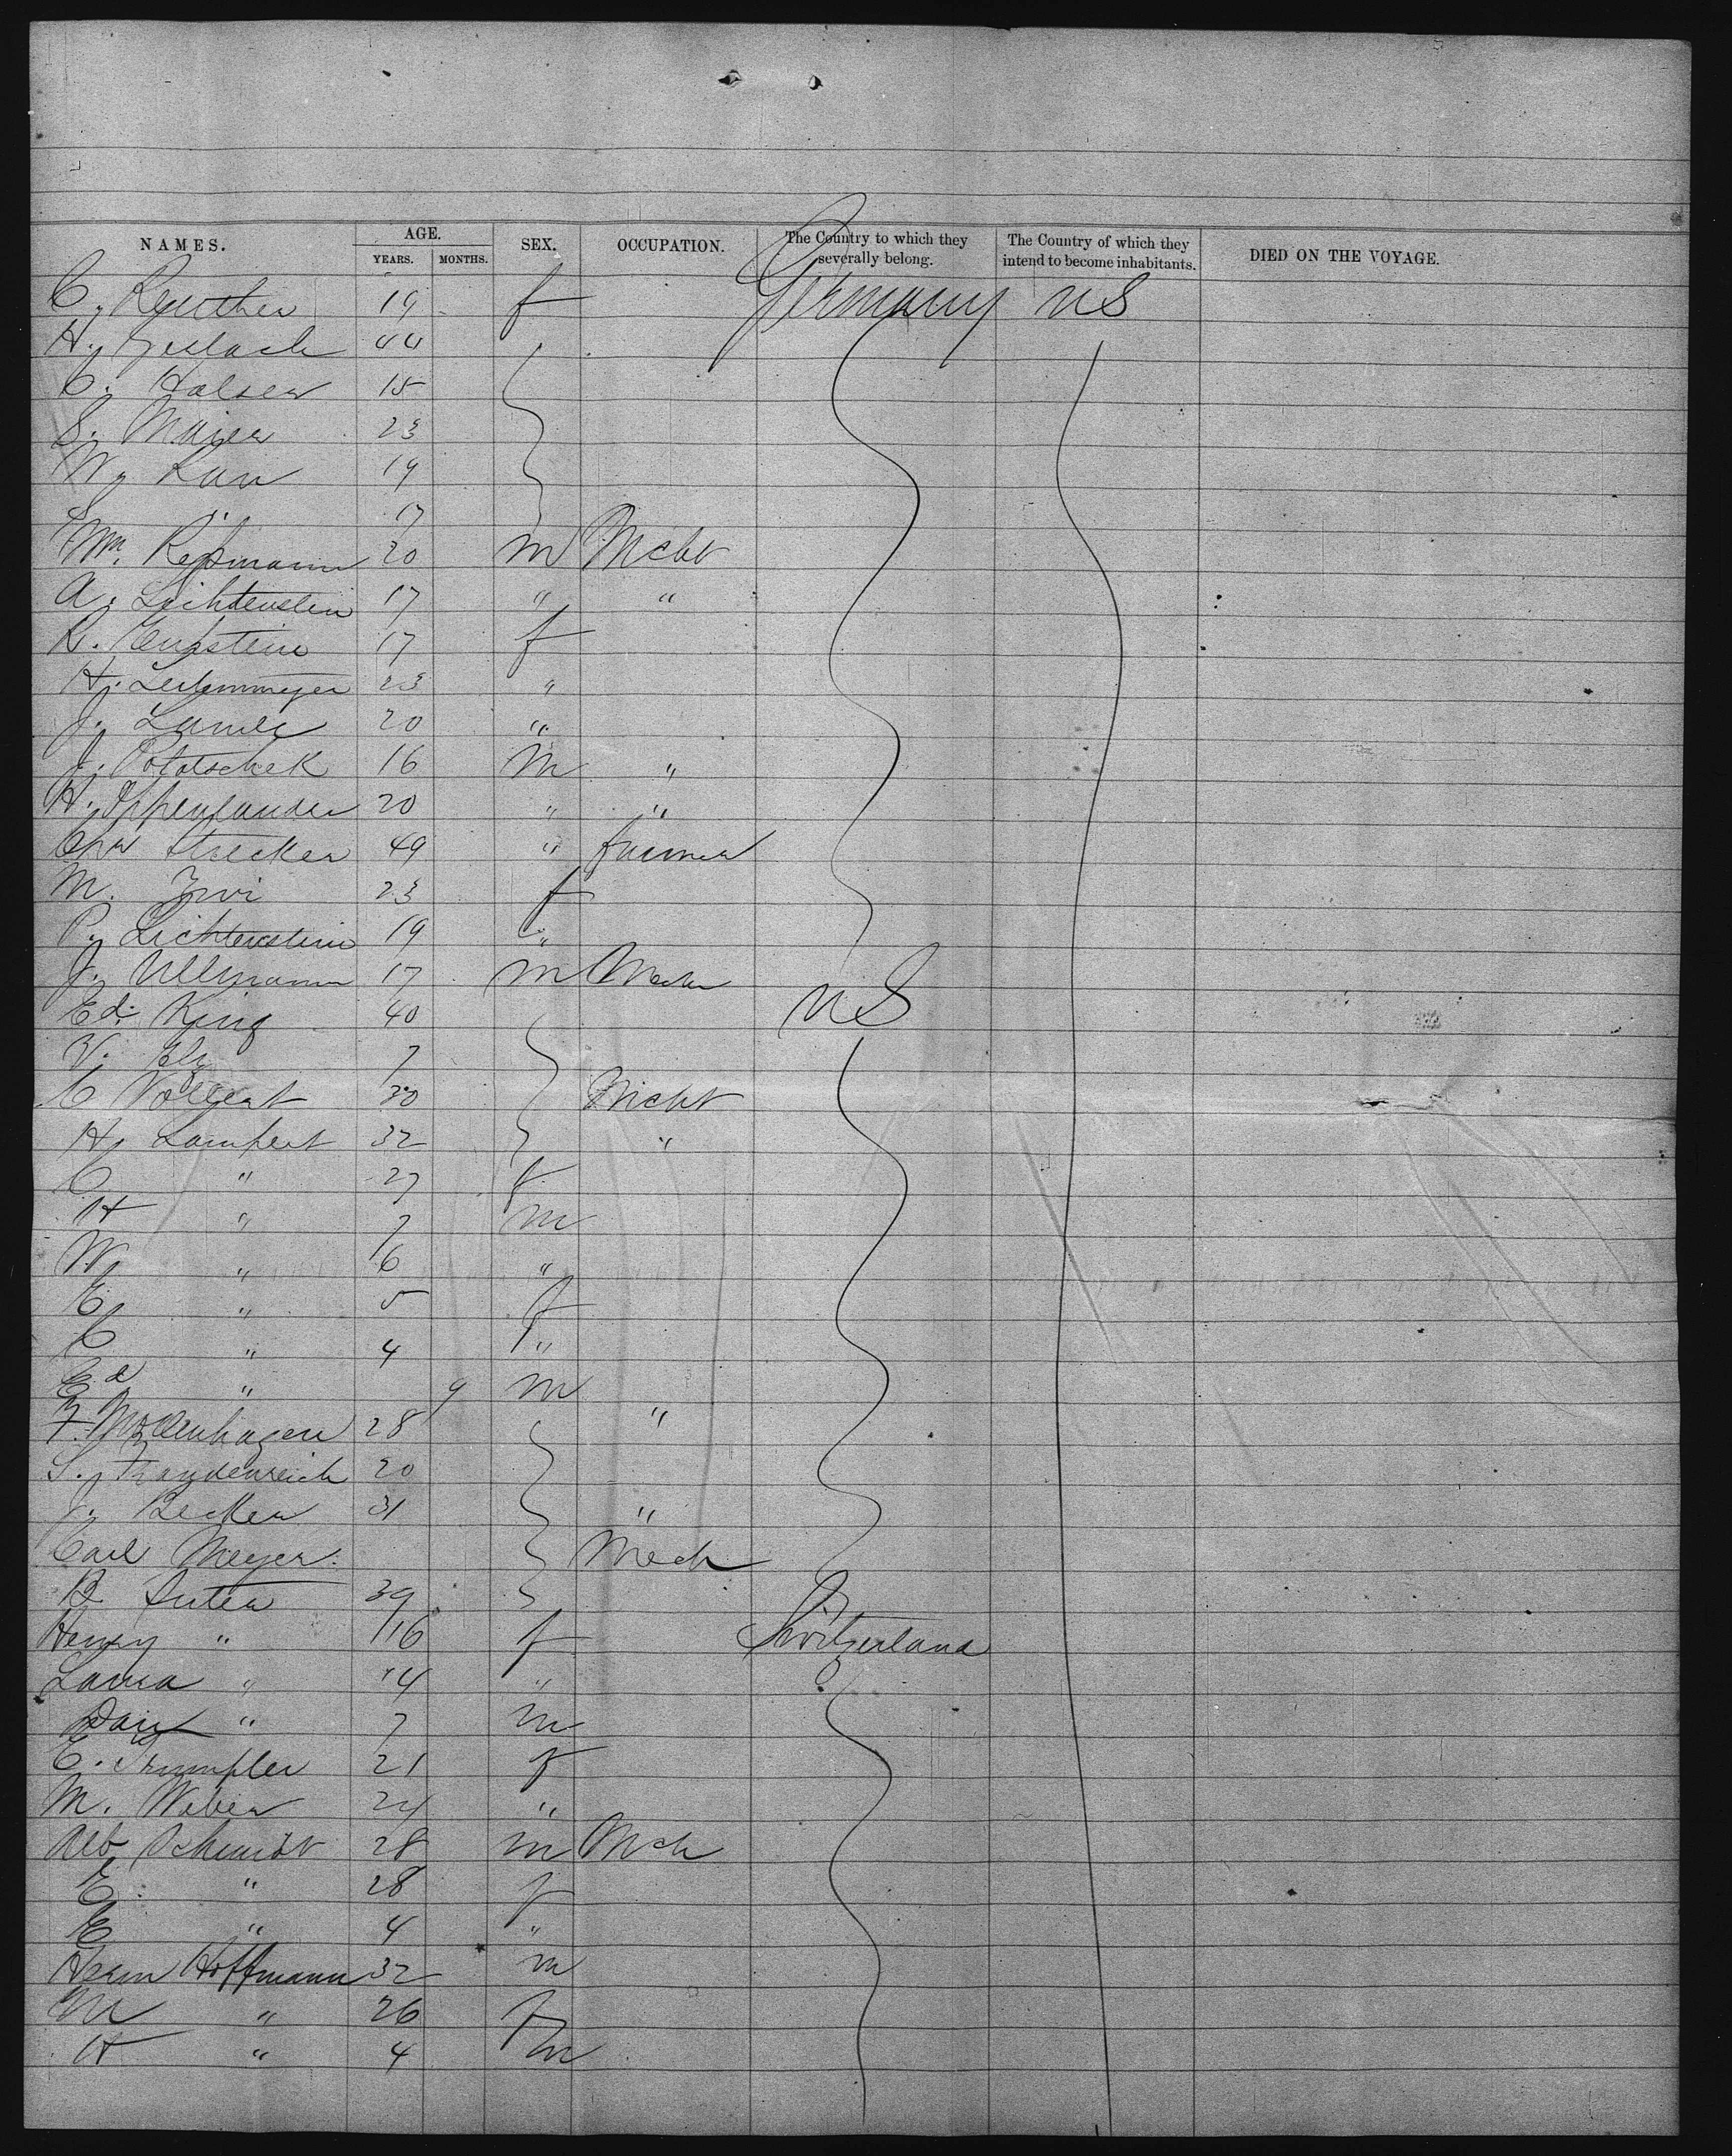 NAMES. AGE. SEX. OCCUPATION. The Country to which they severally belong. The Country of which they intend to become inhabitants. DIED ON THE VOYAGE.
YEARS. MONTHS.
C. Reuther 19 f Germany US
H. Gerlach 44
C. Halser 15
S. Maier 23
W. Rau 19
S. " 17
Wm. Reßmann 20 m Mcht
A. Lichtenstein 17 " "
R. Eppstein 17 f
H. 23 "
J. 20 "
J. Potatschek 16 m "
H. Oppenlander 20 " "
Chr Strecker 49 " farmer
M. Zwi 23 f
P. Lichtenstein 19 "
J. Ullmann 17 m Mech
Ed. King 40 US
V. 7
C Vollert 30 Mcht
H. Lampert 32 "
C " 27 f
H " 7 m
W. " 6 "
E. " 5 f
C " 4 "
Ed " 9 m
F. Modenhagen 28 "
S. 20
J. Becker 31 "
Carl Meyer. Mech
B. Suter 39
Henry " 16 f Switzerland
Laura " 14 "
" 7 m
E. Trumpler 21 f
M. Weber 24 "
Alb Schmidt 28 m Mch
E. " 28 f
E " 4 "
Herm Hoffmann 32 m
M " 26 f
H " 4 m